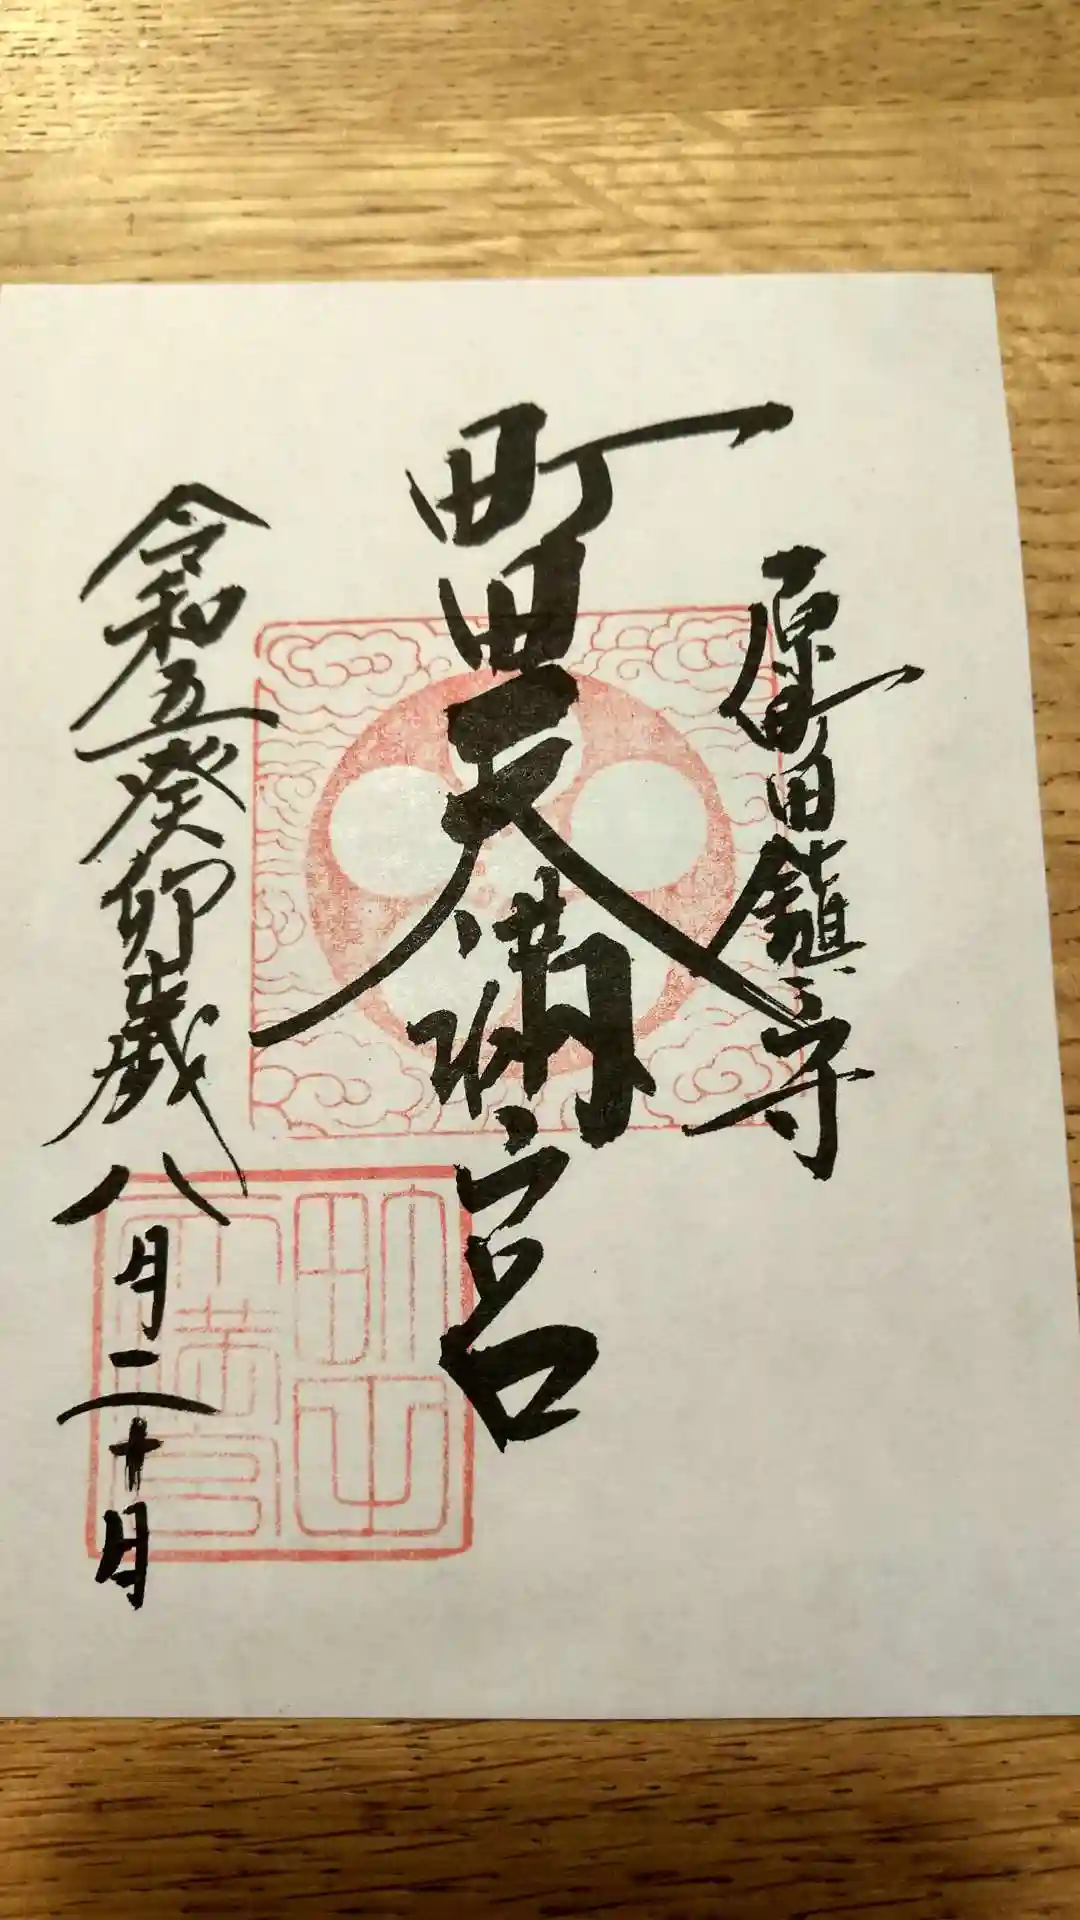 原町田鎮守
町田天満宮
令和五癸卯歳八月二十日
町田天満宮